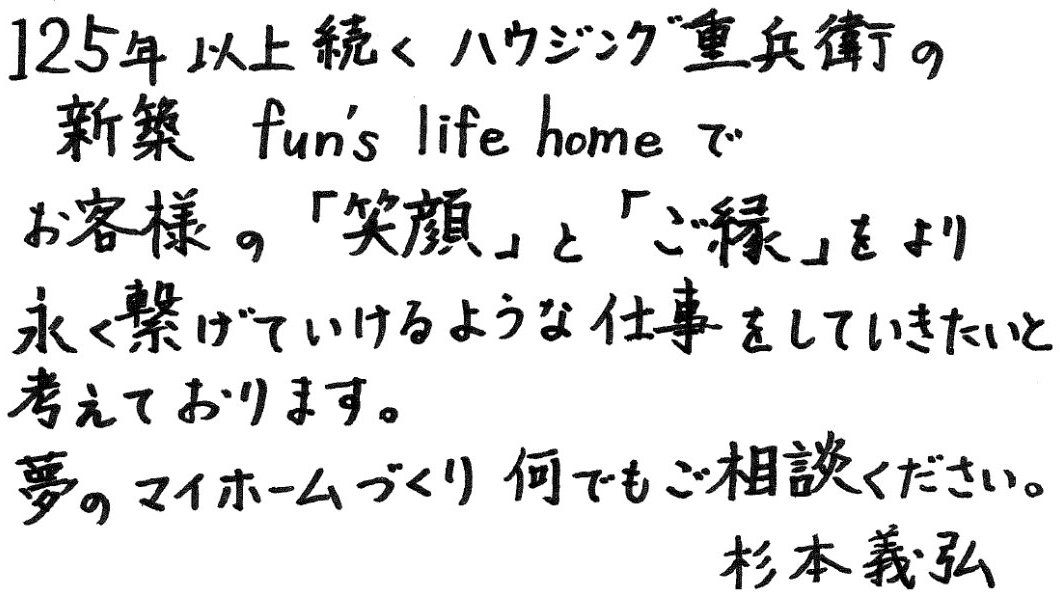 125年以上続くハウジング重兵衛の
新築 fun's life homeで
お客様の「笑顔」と「ご縁」をより
永く繋げていけるような仕事をしていきたいと
考えております。
夢のマイホームづくり何でもご相談ください。
杉本義弘